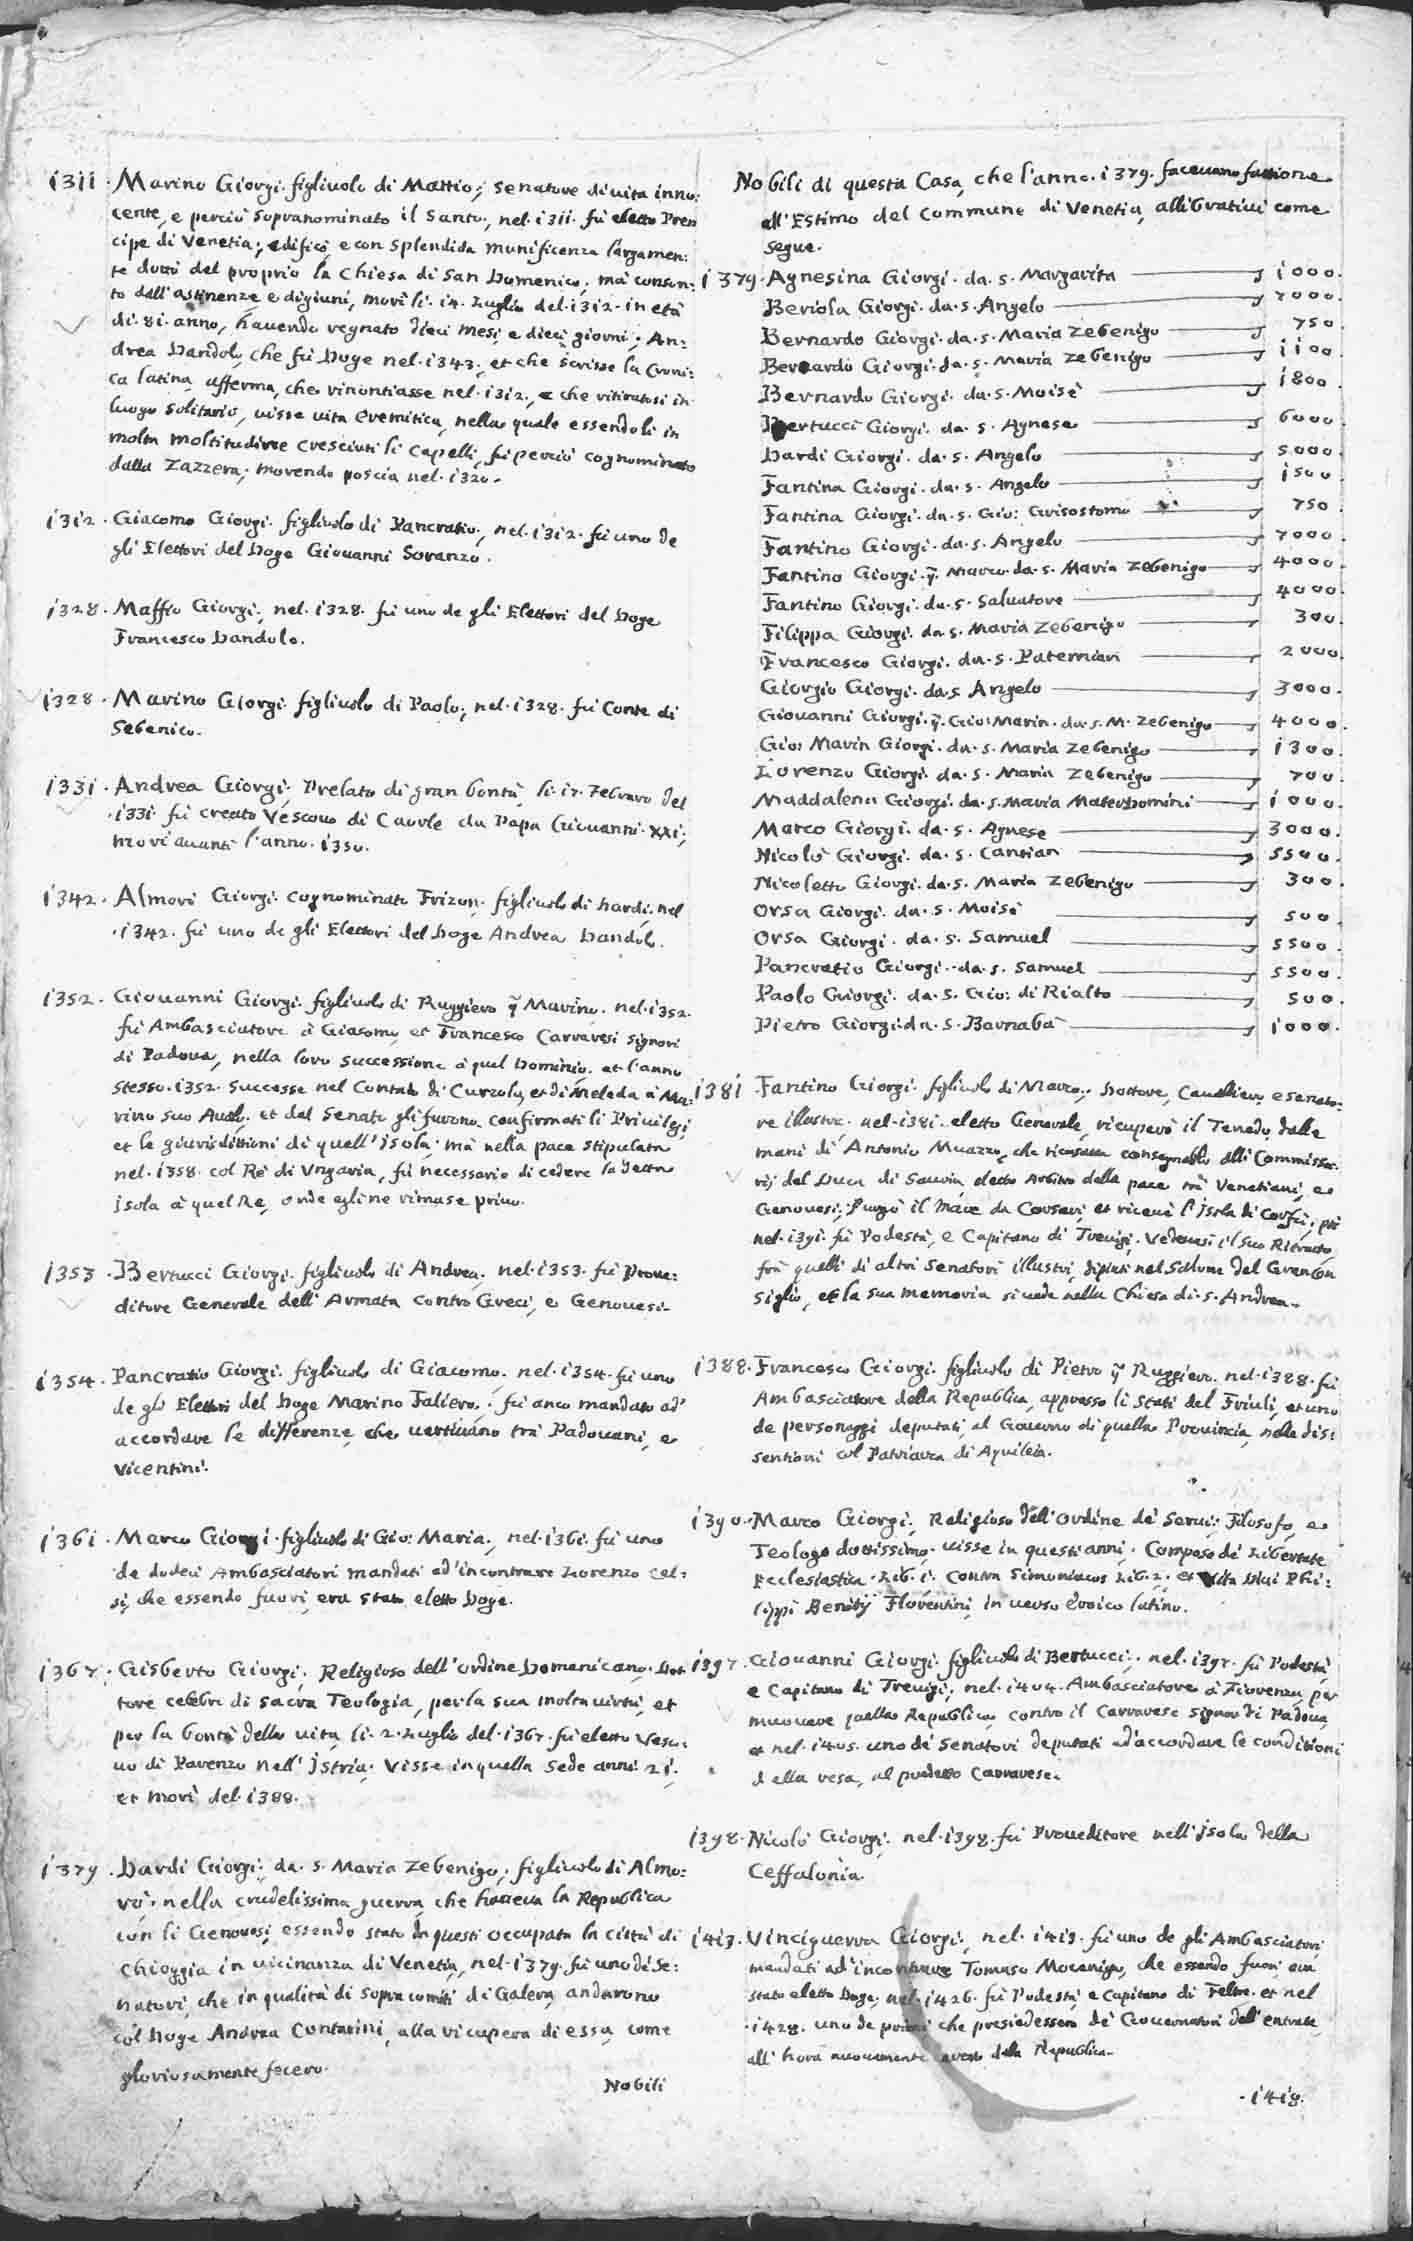 1311 · Marino Giorgi figliuolo di Mattio, Senatore di vita inno:
cente, e perciò sopranominato il Santo, nel 1311 fù eletto Pren
cipe di Venetia; edificò, e con splendida munificenza largamen:
te dottò del proprio la Chiesa di San Domenico; mà consun:
to dall'astinenze, e digiuni, morì li 14 Luglio del 1312 in età
di 81 anno, havendo regnato dieci mesi, e dieci giorni; An:
drea Dandolo, che fù Doge nel 1343, et che scrisse la Croni:
ca latina, afferma, che rinontiasse nel 1312, e che ritiratosi in
luogo solitario, visse vita eremitica, nella quale essendoli in
molta moltitudine cresciuti li Capelli, fù perciò cognominato
dalla Zazzera; morendo poscia nel 1320.
1312 · Giacomo Giorgi figliuolo di Pancratio, nel 1312 fù uno de
gli Elettori del Doge Giovanni Soranzo.
1328 · Maffio Giorgi, nel 1328 fù uno de gli Elettori del Doge
Francesco Dandolo.
1328 · Marino Giorgi figliuolo di Paolo, nel 1328 fù Conte di
Sebenico.
1331 · Andrea Giorgi, Prelato di gran bontà, li 17 Febraro del
1331 fù creato Vescovo di Caorle da Papa Giovanni XXI;
morì avanti l'anno 1350.
1342 · Almorò Giorgi cognominato Frizon figliuolo di Dardi, nel
1342 fù uno de gli Elettori del Doge Andrea Dandolo.
1352 · Giovanni Giorgi figliuolo di Ruggiero q. Marino nel 1352
fù Ambasciatore à Giacomo, et Francesco Carraresi Signori
di Padova, nella loro successione à quel Dominio et l'anno
stesso 1352 successe nel Contado di Curzola, et di Meleda à Ma:
rino suo Avolo, et dal Senato gli furono confirmati li Privilegi,
et le giurisdittioni di quell'Isola; mà nella pace stipulata
nel 1358 col Rè di Ungaria, fù necessario di cedere la detta
Isola à quel Re, onde egli ne rimase privo.
1353 · Bertucci Giorgi figliuolo di Andrea, nel 1353 fù Prove:
ditore Generale dell'Armata contro Greci, e Genovesi.
1354 · Pancratio Giorgi figliuolo di Giacomo, nel 1354 fù uno
de gli Elettori del Doge Marino Faliero, fù anco mandato ad'
accordare le differenze, che vertivano trà Padovani, e
Vicentini.
1361 · Marco Giorgi figliuolo di Gio: Maria, nel 1361 fù uno
de dodeci Ambasciatori mandati ad'incontrare Lorenzo Cel:
si, che essendo fuori, era stato eletto Doge.
1367 · Gisberto Giorgi, Religioso dell'Ordine Domenicano, Dot
tore celebre di sacra Teologia, per la sua molta virtù, et
per la bontà della vita, li 2 Luglio del 1367 fù eletto Vesco:
vo di Parenzo nell'Istria. Visse in quella Sede anni 21,
et morì del 1388.
1379 · Dardi Giorgi da S. Maria Zebenigo, figliuolo di Almo:
rò; nella crudelissima guerra, che haveva la Republica
con li Genovesi, essendo stata da questi occupata la Città di
Chioggia in vicinanza di Venetia, nel 1379 fù uno dè Se:
natori, che in qualità di sopracomiti di Galera, andarono
col Doge Andrea Contarini, alla ricupera di essa, come
gloriosamente fecero.
Nobili
Nobili di questa Casa, che l'anno 1379 facevano fattione
all'Estimo del Commune di Venetia, allibrativi come
segue.
1379 · Agnesina Giorgi da S. Margarita 1000.
Beriola Giorgi da S. Angelo 7000.
Bernardo Giorgi da S. Maria Zebenigo 750
Bernardo Giorgi da S. Maria Zebenigo 1100
Bernardo Giorgi da S. Moisè 1800.
Bertucci Giorgi da S. Agnese 6000
Dardi Giorgi da S. Angelo 5000.
Fantina Giorgi da S. Angelo 1500
Fantina Giorgi da S. Gio: Grisostomo 750
Fantino Giorgi da S. Angelo 7000.
Fantino Giorgi q. Marco da S. Maria Zebenigo 4000.
Fantino Giorgi da S. Salvatore 4000.
Filippa Giorgi da S. Maria Zebenigo 300.
Francesco Giorgi da S. Paternian 2000.
Giorgio Giorgi da S. Angelo 3000.
Giovanni Giorgi q. Gio: Marin da S. M. Zebenigo 4000.
Gio: Marin Giorgi da S. Maria Zebenigo 1300.
Lorenzo Giorgi da S. Maria Zebenigo 700.
Maddalena Giorgi da S. Maria Mater Domini 1000.
Marco Giorgi da S. Agnese 3000.
Nicolò Giorgi da S. Cantian 5500.
Nicoletto Giorgi da S. Maria Zebenigo 300.
Orsa Giorgi da S. Moisè 500.
Orsa Giorgi da S. Samuel 5500.
Pancratio Giorgi da S. Samuel 5500.
Paolo Giorgi da S. Gio: di Rialto 500.
Pietro Giorgi da S. Barnabà 1000.
1381 Fantino Giorgi figliuolo di Marco, Dottore, Cavaliero, e Senato:
re illustre nel 1381 eletto Generale, ricuperò il Tenedo dalle
mani di Antonio Muazzo, che ricusava consegnarlo alli Commissa:
rij del Duca di Savoia, eletto Arbitro della pace trà Venetiani, e
Genovesi; Purgò il mare da Corsari, et ricevè l'Isola di Corfù; poi
nel 1391 fù Podestà, e Capitano di Trevigi. Vedevasi il suo Ritratto
frà quelli di altri Senatori illustri, dipinti nel Salone del Gran Con
siglio, et la sua memoria si vede nella Chiesa di S. Andrea.
1388 · Francesco Giorgi figliuolo di Pietro q. Ruggiero nel 1388 fù
Ambasciatore della Republica, appresso li Stati del Friuli, et uno
de personaggi deputati al Governo di quella Provincia, nelle dis:
sentioni col Patriarca di Aquileia.
1390 · Marco Giorgi, Religioso dell'Ordine dè Servi; Filosofo, e
Teologo dottissimo, visse in questi anni. Compose dè Libertate
Ecclesiastica Lib. 1. Contra Simoniacos Lib. 2. et Vita Divi Phi:
lippi Benitij Florentini, in verso eroico latino.
1397 · Giovanni Giorgi figliuolo di Bertucci, nel 1397 fù Podestà
e Capitano di Trevigi, nel 1404 Ambasciatore à Fiorenza, per
muovere quella Republica, contro il Carrarese Signor di Padova,
et nel 1405 uno dè Senatori deputati ad'accordare le conditioni
della resa, al predetto Carrarese.
1398 · Nicolò Giorgi, nel 1398 fù Proveditore nell'Isola della
Ceffalonia.
1413 · Vinciguerra Giorgi, nel 1413 fù uno de gli Ambasciatori
mandati ad'incontrare Tomaso Mocenigo, che essendo fuori, era
stato eletto Doge, nel 1426 fù Podestà, e Capitano di Feltre et nel
1428 uno de primi che presiedessero dè Governatori dell'entrate,
all'hora nuovamente dalla Republica.
· 1418.